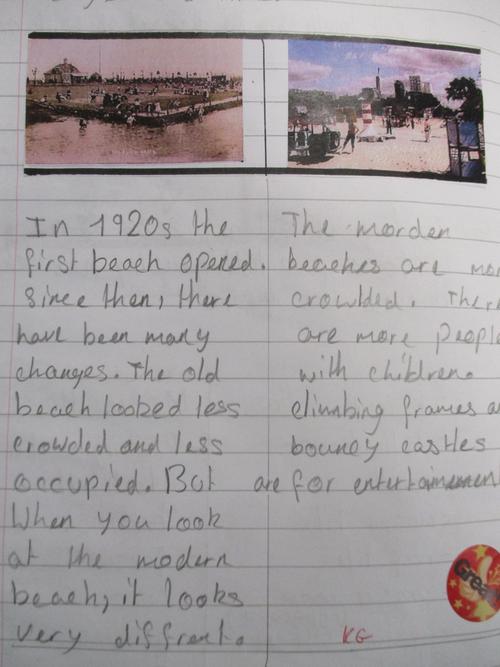 In 1920s the
first beach opened.
Since then, there
have been many
changes. The old
beach looked less
crowded and less
occupied. But
When you look
at the modern
beach, it looks
very diffrent.
The morden
beaches are mor
crowlded. Ther
are more people
with children.
climbing frames a
bouncy castles
are for entertainmen
KG
Great